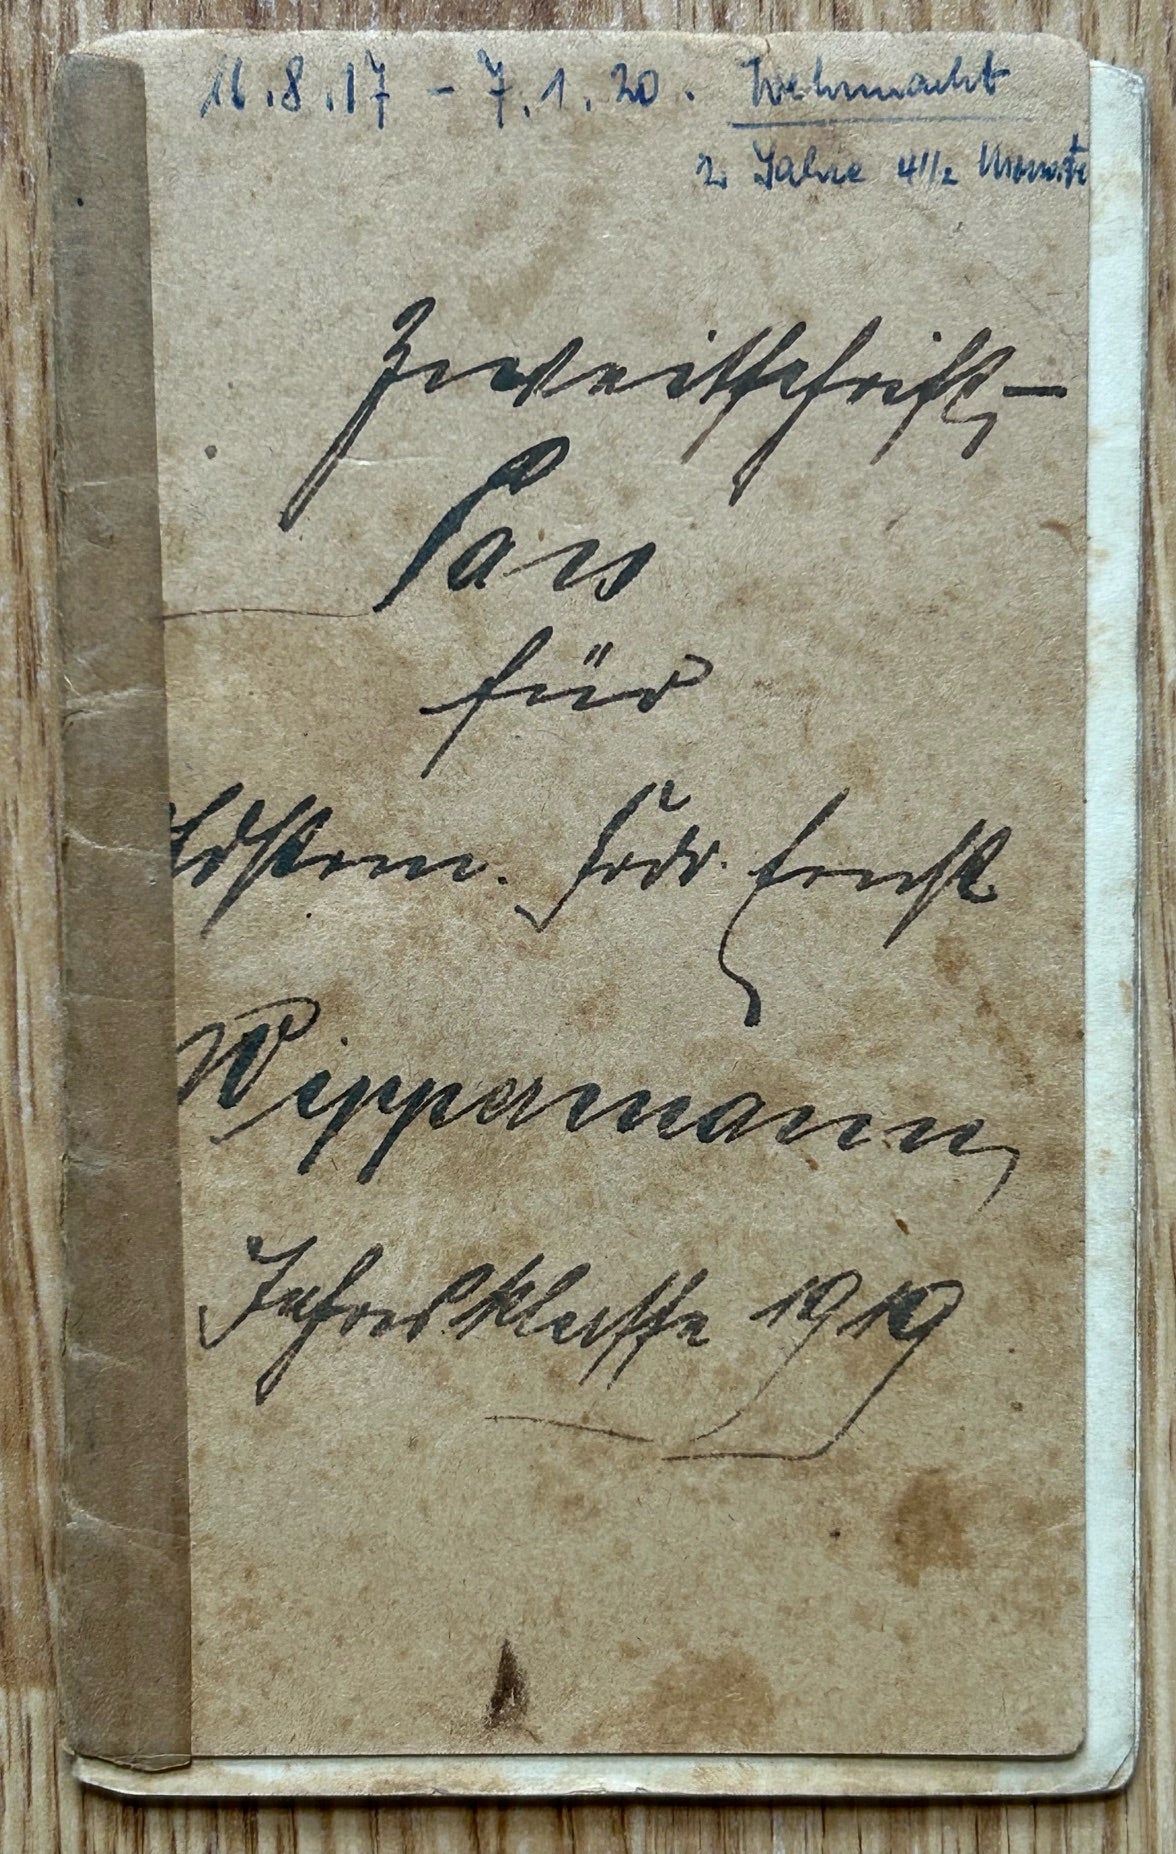 16.8.17 - 7.1.20. Wehrmacht
2 Jahre 4 1/2 Monate
Zweitschrift-
Pass
für
Ernst
Wippermann
Jahresklasse 1919